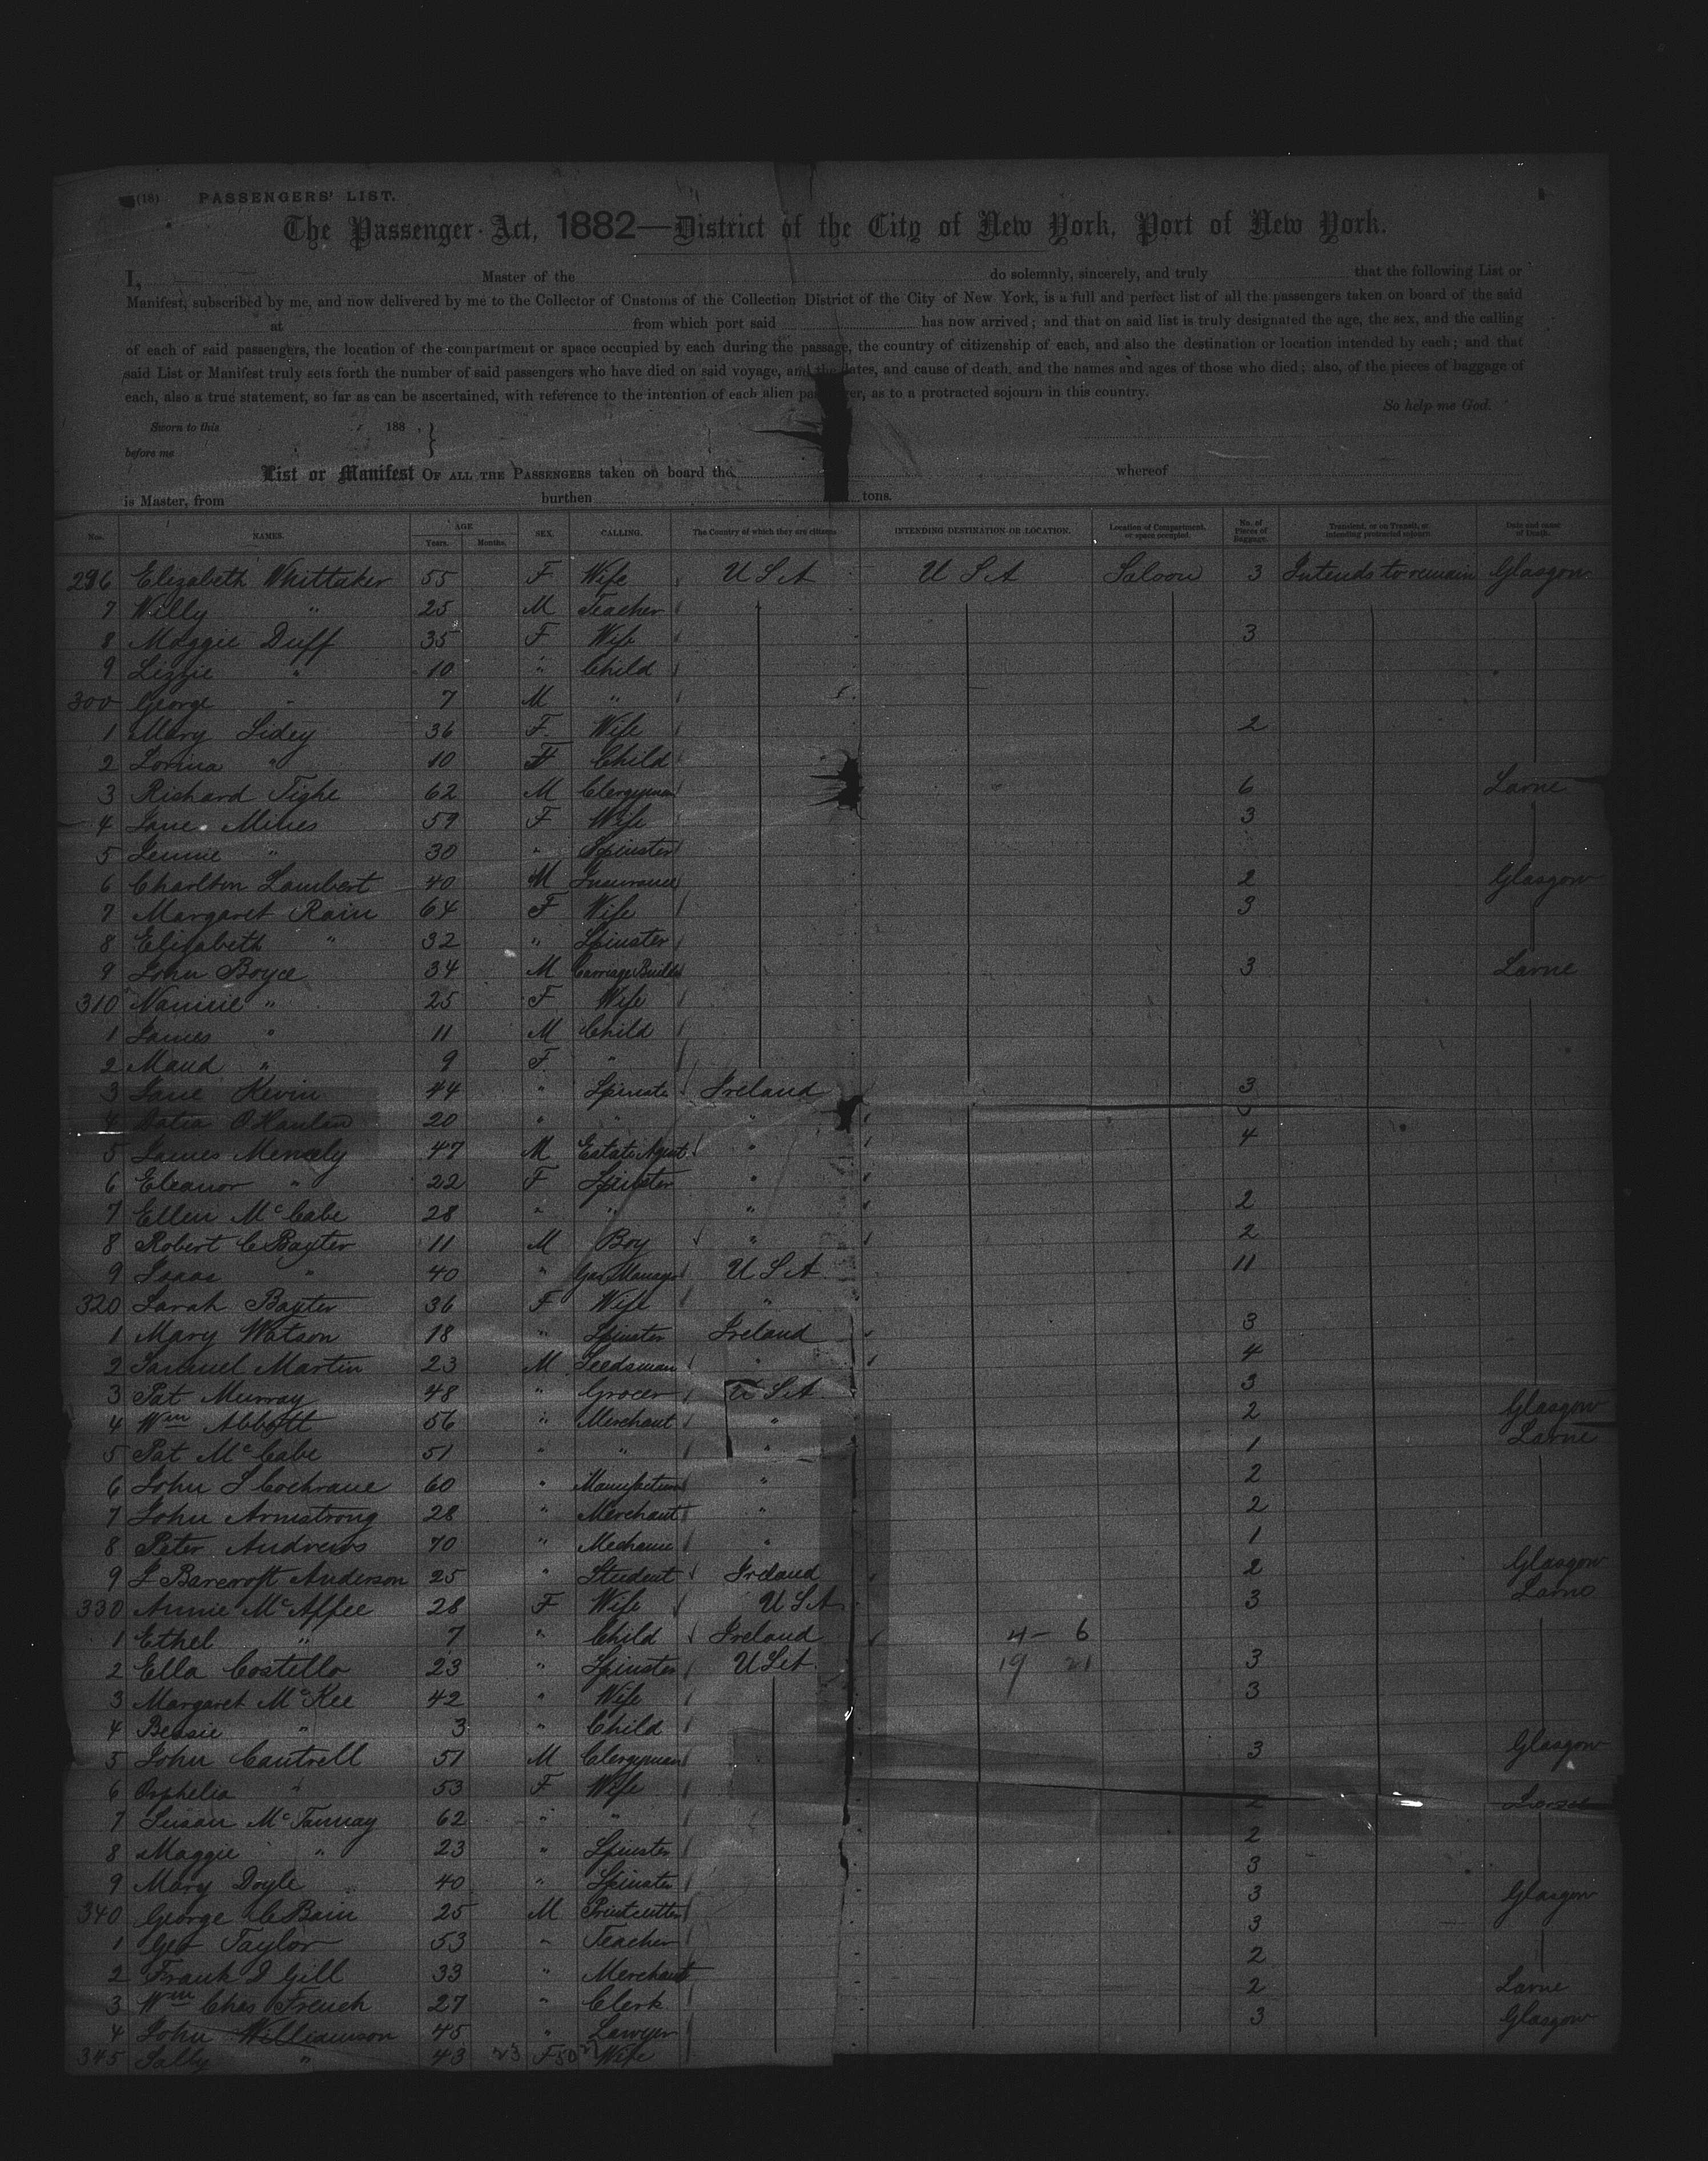 (18) PASSENGERS' LIST.
The Passenger Act, 1882—District of the City of New York, Port of New York.
I, Master of the do solemnly, sincerely, and truly that the following List or
Manifest, subscribed by me, and now delivered by me to the Collector of Customs of the Collection District of the City of New York, is a full and perfect list of all the passengers taken on board of the said
at from which port said has now arrived; and that on said list is truly designated the age, the sex, and the calling
of each of said passengers, the location of the compartment or space occupied by each during the passage, the country of citizenship of each, and also the destination or location intended by each; and that
said List or Manifest truly sets forth the number of said passengers who have died on said voyage, and the dates, and cause of death, and the names and ages of those who died; also, of the pieces of baggage of
each, also a true statement, so far as can be ascertained, with reference to the intention of each alien passenger, as to a protracted sojourn in this country.
So help me God.
Sworn to this 188 .
before me
List or Manifest OF ALL THE PASSENGERS taken on board the whereof
is Master, from burthen tons.
Nos. NAMES. AGE Years. Months. SEX. CALLING. The Country of which they are citizens INTENDING DESTINATION OR LOCATION. Location of Compartment, or space occupied. No. of Pieces of Baggage. Transient, or on Transit, or intending protracted sojourn. Date and cause of Death.
296 Elizabeth Whittaker 55 F Wife U S A U S A Saloon 3 Intends to remain Glasgow
7 Willy " 25 M Teacher
8 Maggie Duff 35 F Wife 3
9 Lizzie " 10 " Child
300 George " 7 M "
1 Mary Sidey 36 F Wife 2
2 Lorina " 10 F Child
3 Richard Tighe 62 M Clergyman 6 Larne
4 Jane Milnes 59 F Wife 3
5 Jennie " 30 " Spinster
6 Charlton Lambert 40 M Insurance 2 Glasgow
7 Margaret Rain 64 F Wife 3
8 Elizabeth " 32 " Spinster
9 John Boyce 34 M Carriage Builder 3 Larne
310 Nannie " 25 F Wife
1 James " 11 M Child
2 Maud " 9 F "
3 Jane Kevin 44 " Spinster Ireland 3
4 O'Hanlan 20 " " "
5 James Menely 47 M Estate Agent " 4
6 Eleanor " 22 F Spinster "
7 Ellen McCabe 28 " " " 2
8 Robert C Baxter 11 M Boy " 2
9 Isaac " 40 " Gas Manager U S A 11
320 Sarah Baxter 36 F Wife "
1 Mary Watson 18 " Spinster Ireland 3
2 Samuel Martin 23 M Seedsman " 4
3 Pat Murray 48 " Grocer U S A 3
4 Wm Abbott 56 " Merchant " 2 Glasgow
5 Pat McCabe 51 " " " 1 Larne
6 John S Cochrane 60 " Manufacturer " 2
7 John Armstrong 28 " Merchant " 2
8 Peter Andrews 70 " Mechanic " 1
9 J Barcroft Anderson 25 " Student Ireland 2 Glasgow
330 Annie McAffee 28 F Wife U S A 3 Larne
1 Ethel " 7 " Child Ireland 4 - 6
2 Ella Costello 23 " Spinster U S A 19 21 3
3 Margaret McKee 42 " Wife 3
4 Bessie " 3 " Child
5 John Cantrell 51 M Clergyman 3 Glasgow
6 Orphelia " 53 F Wife
7 Susan McTannay 62 " " 2 Larne
8 Maggie " 23 " Spinster 2
9 Mary Doyle 40 " Spinster 3
340 George C Bain 25 M Printcutter 3 Glasgow
1 Geo Taylor 53 " Teacher 3
2 Frank D Gill 33 " Merchant 2
3 Wm Chas French 27 " Clerk 2 Larne
4 John Williamson 45 " Lawyer 3 Glasgow
345 Sally " 43 23 F 50 27 Wife